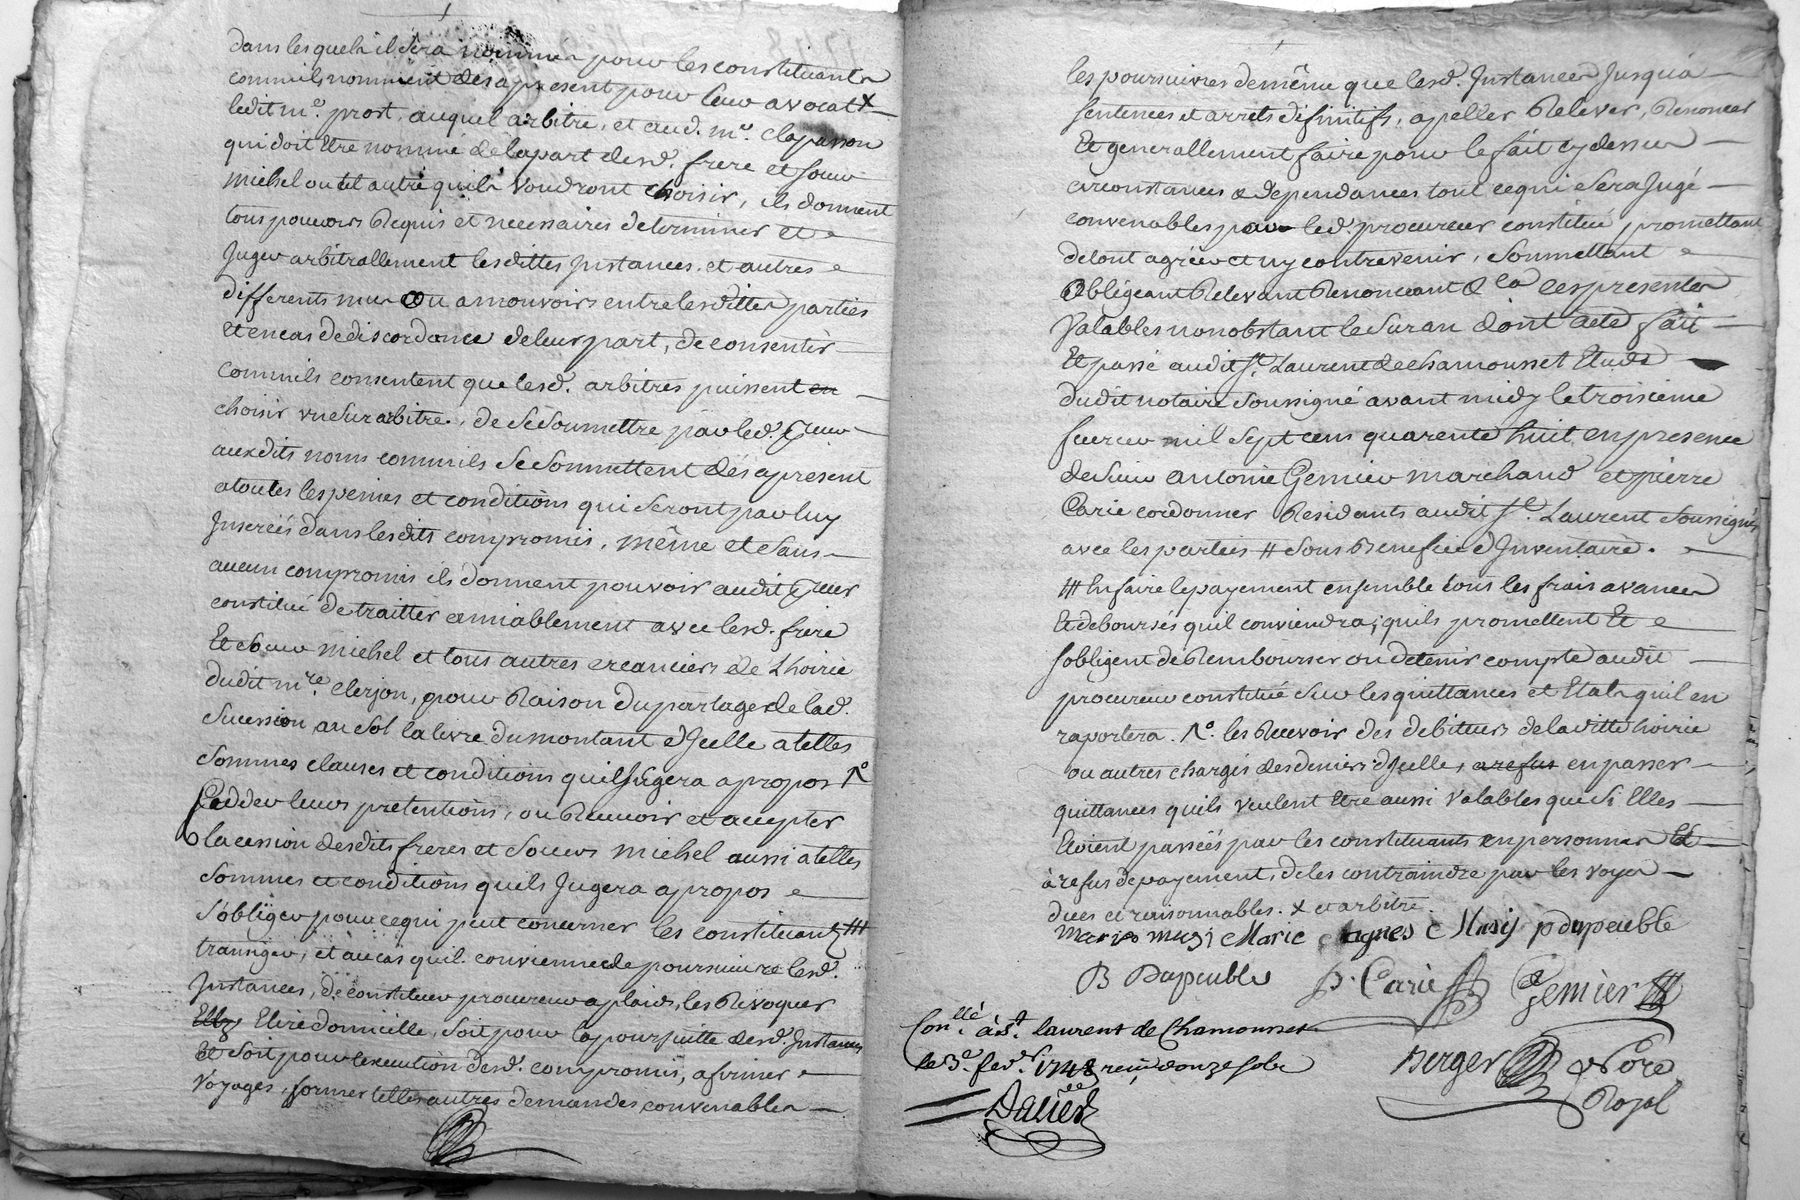 dans lesquels il sera nommé pour les constituants
comm'ils nomment dès apresent pour leur avocat x
ledit me. prost, auquel arbitre, et aud. me. clapasson
qui doit Etre nommé de la part desd. frere et sœur
michel ou tel autre quils voudront choisir, ils donnent
tous pouvoirs Requis et necessaires determiner et
Juger arbitrallement lesdittes Instances et autres
differents mus ou amouvoirs entre lesdittes parties
Et en cas de discordance de leur part, de consentir
comm'ils consentent que lesd. arbitres puissent en
choisir un surarbitre, de se soumettre par led. Sieur
auxdits noms comm'ils se soummettent dès apresent
a toutes les peines et conditions qui seront par luy
Inserées dans lesdits compromis, même et sans
aucun compromis ils donnent pouvoir audit Sieur
constitué de traitter amiablement avec lesd. frere
Et sœur michel et tous autres creanciers de Lhoirie
dudit mre. clerjon, pour Raison du partage de lad.
Sucession au sol la livre du montant d'Icelle a telles
sommes clauses et conditions quil Jugera a propos 1o
Cedder leurs pretentions, ou Recevoir et accepter
la cession desdits freres et sœurs michel aussi a telles
sommes et conditions quils Jugera apropos
s'obliger pour ce qui peut concerner les constituants #
transiger, et au cas quil convienne de poursuivre lesd.
Instances, de constituer procureur a plaids, les Revoquer
Elire domicille, soit pour la poursuitte desd. Instances
et soit pour lexecution desd. compromis, afirmer
voyages, former telles autres demandes convenables
les poursuivres de même que lesd. Instances Jusqu'a
sentences et arrets difinitifs, apeller Relever, Renoncer
Et generallement faire pour le fait cy dessus
circonstances & dependances tout ce qui sera Jugé
convenables par led. procureur constitué, promettant
de tout agréer et ny contrevenir, soumettant
obligeant Relevant Renonceant & la cespresentes
Valables nonobstant le suran dont acte fait
Et passé audit St. Laurent de chamousset Etude
dudit notaire soussigné avant midy le troisieme
fevrier mil sept cens quarente huit en presence
de sieur antoine Gernier marchand et pierre
Carie cordonner Residants audit St. Laurent soussignés
avec les parties # sous Benefice d'Inventaire.
# En faire le payement ensemble tous les frais avances
Et deboursés quil conviendra, quils promettent Et
sobligent de Rembourser ou de tenir compte audit
procureur constitué sur les quittances et Etats quil en
raportera. 1o. les Recevoir des debiteurs de laditte hoirie
ou autres chargés des deniers d'Icelle, a refus en passer
quittances quils veulent Etre aussi valables que si Elles
Etoient passées par les constituants en personnes Et
a refus de payement, de les contraindre par les voyes
dues et raisonnables. x et arbitre.
marie musi Marie Agnes Musy p dupeuble
B Dupeuble P. Carie Gernier
Conllé. à St. laurent de Chamousset
le 3e. fevr. 1748 reçu douze sols
Berger Nore
Royal